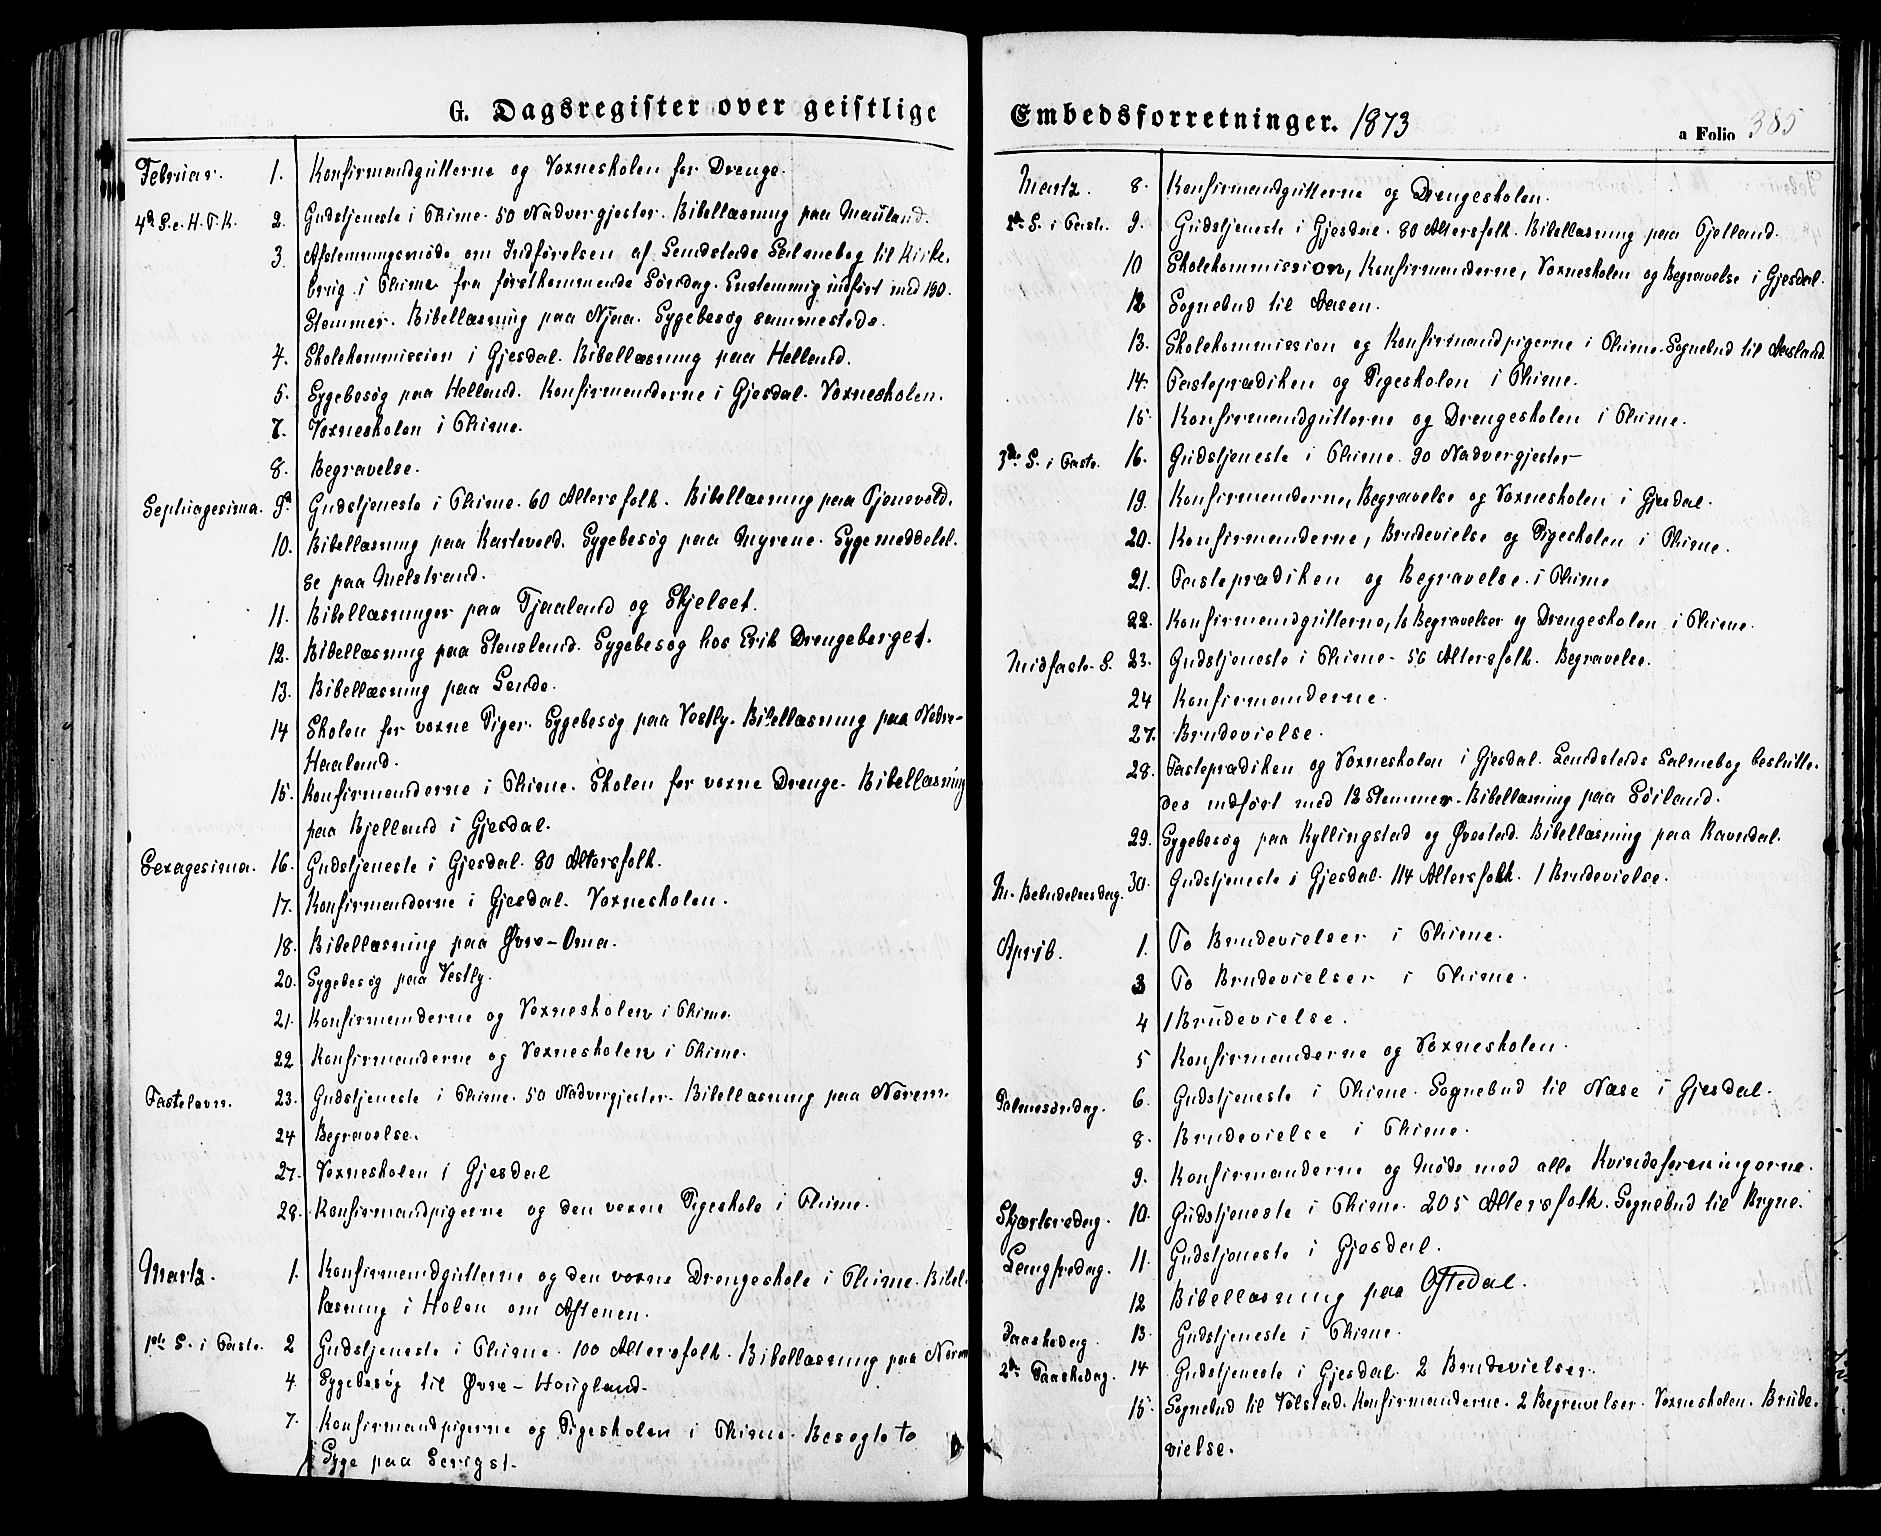 G. Dagsregister over geistlige
Februar. 1. Konfirmandgutterne og Voxneskolen for Drenge.
4de S. e. H. T. K. 2. Gudstjeneste i Thime. 50 Nadvergjester. Bibellæsning paa Mauland.
3. Afstemningsmøde om Indførelsen af Landstads Salmebog til Kirke-
brug i Thime fra førstkommende Søndag. Enstemmig indført med 190
Stemmer. Bibellæsning paa Njaa. Sygebesøg sammesteds.
4. Skolekommission i Gjesdal. Bibellæsning paa Helland.
5. Sygebesøg paa Helland. Konfirmanderne i Gjesdal. Voxneskolen.
7. Voxneskolen i Thime.
8. Begravelse.
Septuagesima. 9. Gudstjeneste i Thime. 60 Altersfolk. Bibellæsning paa Tjenevold.
10. Bibellæsning paa Kartevold. Sygebesøg paa Myrene. Sygemeddelel-
se paa Melstrand.
11. Bibellæsninger paa Tjaaland og Skjelset.
12. Bibellæsning paa Stensland. Sygebesøg hos Erik Drengeberget.
13. Bibellæsning paa Lende.
14 Skolen for voxne Piger. Sygebesøg paa Vestly. Bibellæsning paa Nedre-
Haaland.
15. Konfirmanderne i Thime. Skolen for voxne Drenge. Bibellæsning
paa Bjelland i Gjesdal.
Sexagesima. 16. Gudstjeneste i Gjesdal. 80 Altersfolk.
17. Konfirmanderne i Gjesdal. Voxneskolen.
18. Bibellæsning paa Øvre-Oma.
20. Sygebesøg paa Vestly.
21. Konfirmanderne og Voxneskolen i Thime.
22 Konfirmanderne og Voxneskolen i Thime.
Fastelavn. 23. Gudstjeneste i Thime. 50 Nadvergjester. Bibellæsning paa Norem.
24 Begravelse.
27. Voxneskolen i Gjesdal
28. Konfirmandpigerne og den voxne Pigeskole i Thime.
Martz. 1. Konfirmandgutterne og den voxne Drengeskole i Thime. Bibel-
læsning i Holen om Aftenen.
1ste S. i Faste. 2 Gudstjeneste i Thime. 100 Altersfolk. Bibellæsning paa Norem
4. Sygebesøg til Øvre-Hougland.
7. Konfirmandpigerne og Pigeskolen i Thime. Besøgte to
Syge paa Serigst.
Embedsforretninger. 1873
a Folio 385
Martz. 8. Konfirmandgutterne og Drengeskolen.
S. i Faste. 9. Gudstjeneste i Gjesdal. 80 Altersfolk. Bibellæsning paa Fjelland.
10 Skolekommission, Konfirmanderne, Voxneskolen og Begravelse i Gjesdal.
12 Sognebud til Aasen.
13. Skolekommission og Konfirmandpigerne i Thime. Sognebud til Aasland.
14. Fasteprædiken og Pigeskolen i Thime.
15. Konfirmandgutterne og Drengeskolen i Thime.
3de S. i Faste. 16. Gudstjeneste i Thime. 90 Nadvergjester
19. Konfirmanderne, Begravelse og Voxneskolen i Gjesdal.
20. Konfirmanderne, Brudevielse og Pigeskolen i Thime.
21. Fasteprædiken og Begravelse i Thime
22. Konfirmandgutterne, to Begravelser og Drengeskolen i Thime.
Midfaste S. 23. Gudstjeneste i Thime. 56 Altersfolk. Begravelse.
24 Konfirmanderne.
27. Brudevielse.
28. Fasteprædiken og Voxneskolen i Gjesdal. Landstads Salmebog beslutte-
des indført med 12 Stemmer. Bibellæsning paa Søiland.
29. Sygebesøg paa Kyllingstad og Øvestad. Bibellæsning paa Ravndal.
M. Bebudelsesdag. 30. Gudstjeneste i Gjesdal. 114 Altersfolk. 1 Brudevielse.
April. 1. To Brudevielser i Thime.
3 To Brudevielser i Thime.
4 1 Brudevielse.
5 Konfirmanderne og Voxneskolen.
Palmesøndag. 6. Gudstjeneste i Thime. Sognebud til Næse i Gjesdal.
8. Brudevielse i Thime.
9. Konfirmanderne og Møde med alle Kvindeforeningerne.
Skjærtorsdag. 10. Gudstjeneste i Thime. 205 Altersfolk. Sognebud til Bryne.
Langfredag. 11. Gudstjeneste i Gjesdal.
12 Bibellæsning paa Oftedal.
Paaskedag. 13. Gudstjeneste i Thime.
2den Paaskedag. 14 Gudstjeneste i Gjesdal. 2 Brudevielser.
15. Sognebud til Tolstad. Konfirmanderne. 2 Begravelser. Voxneskolen. Brude-
vielse.